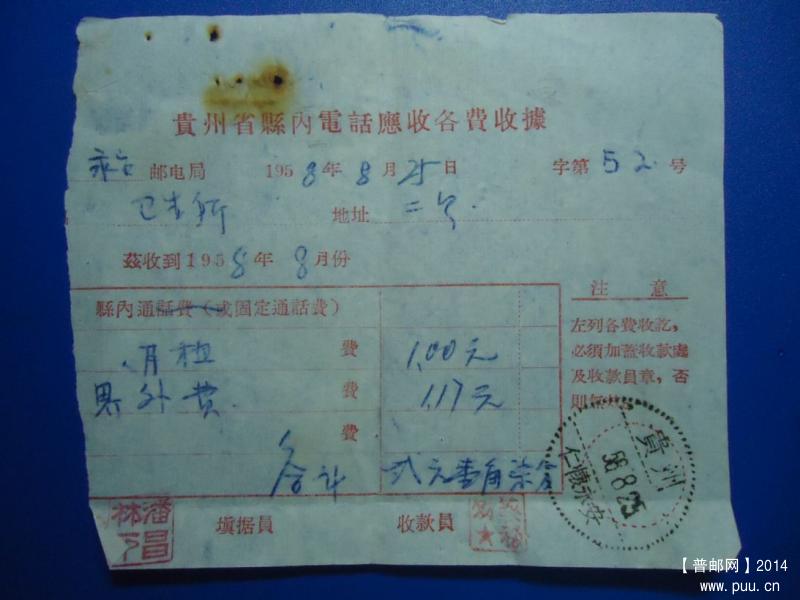 貴州省縣內電話應收各費收據
永安 邮电局 1958年8月25日 字第52号
卫生所 地址 二号
茲收到1958年8月份
縣內通話費（或固定通話費）
月租 費 1.00元
县外費 費 1.17元
費
合计 弍元壹角柒分
注 意
左列各費收訖，
必須加蓋收款處
及收款員章，否
則無
填据員 收款員
潘昌林
貴州
58.8.25
仁懷永安
【普邮网】2014
www.puu.cn